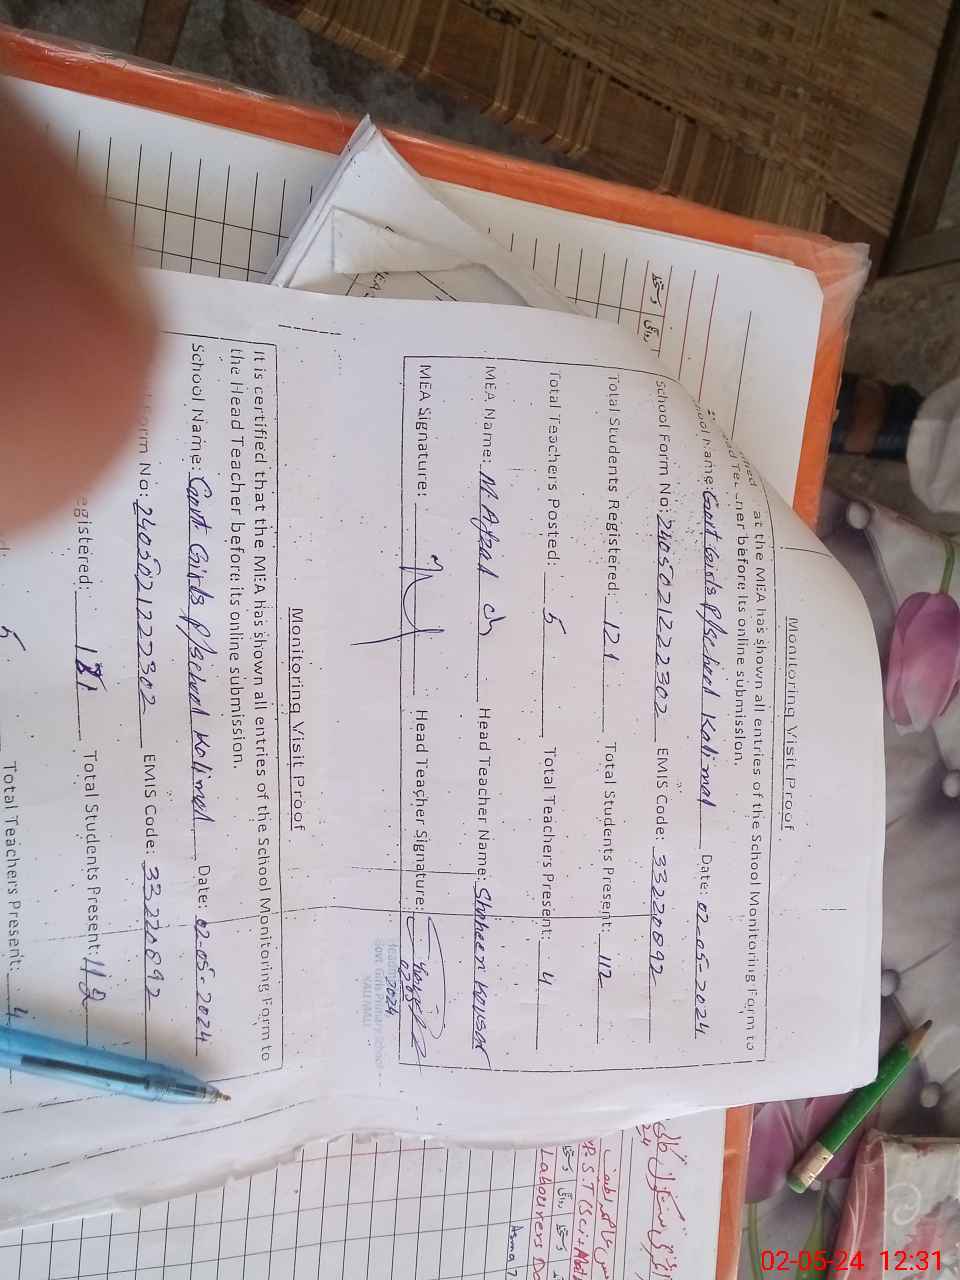 Monitoring Visit Proof
at the MEA has shown all entries of the School Monitoring Form to
before its online submission.
Name: Govt Girls P/school Kalimal Date: 02-05-2024
School Form No: 240502122302 EMIS Code: 33220892
Total Students Registered: 121 Total Students Present: 112
Total Teachers Posted: 5 Total Teachers Present: 4
MEA Name: M Afzal ch Head Teacher Name: Shaheen Kousar
MEA Signature: Head Teacher Signature:
2024
Govt. Girls Primary School
Monitoring Visit Proof
It is certified that the MEA has shown all entries of the School Monitoring Form to
the Head Teacher before its online submission.
School Name: Govt Girls P/school Kalimal Date: 02-05-2024
Form No: 240502122302 EMIS Code: 33220892
egistered: 121 Total Students Present: 112
5 Total Teachers Present: 4
P.S.T (Sci+Mat
Labourers D
Asma
02-05-24 12:31